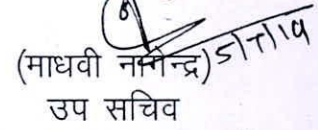 (माधवी नागेन्द्र) 5/7/19
उप सचिव